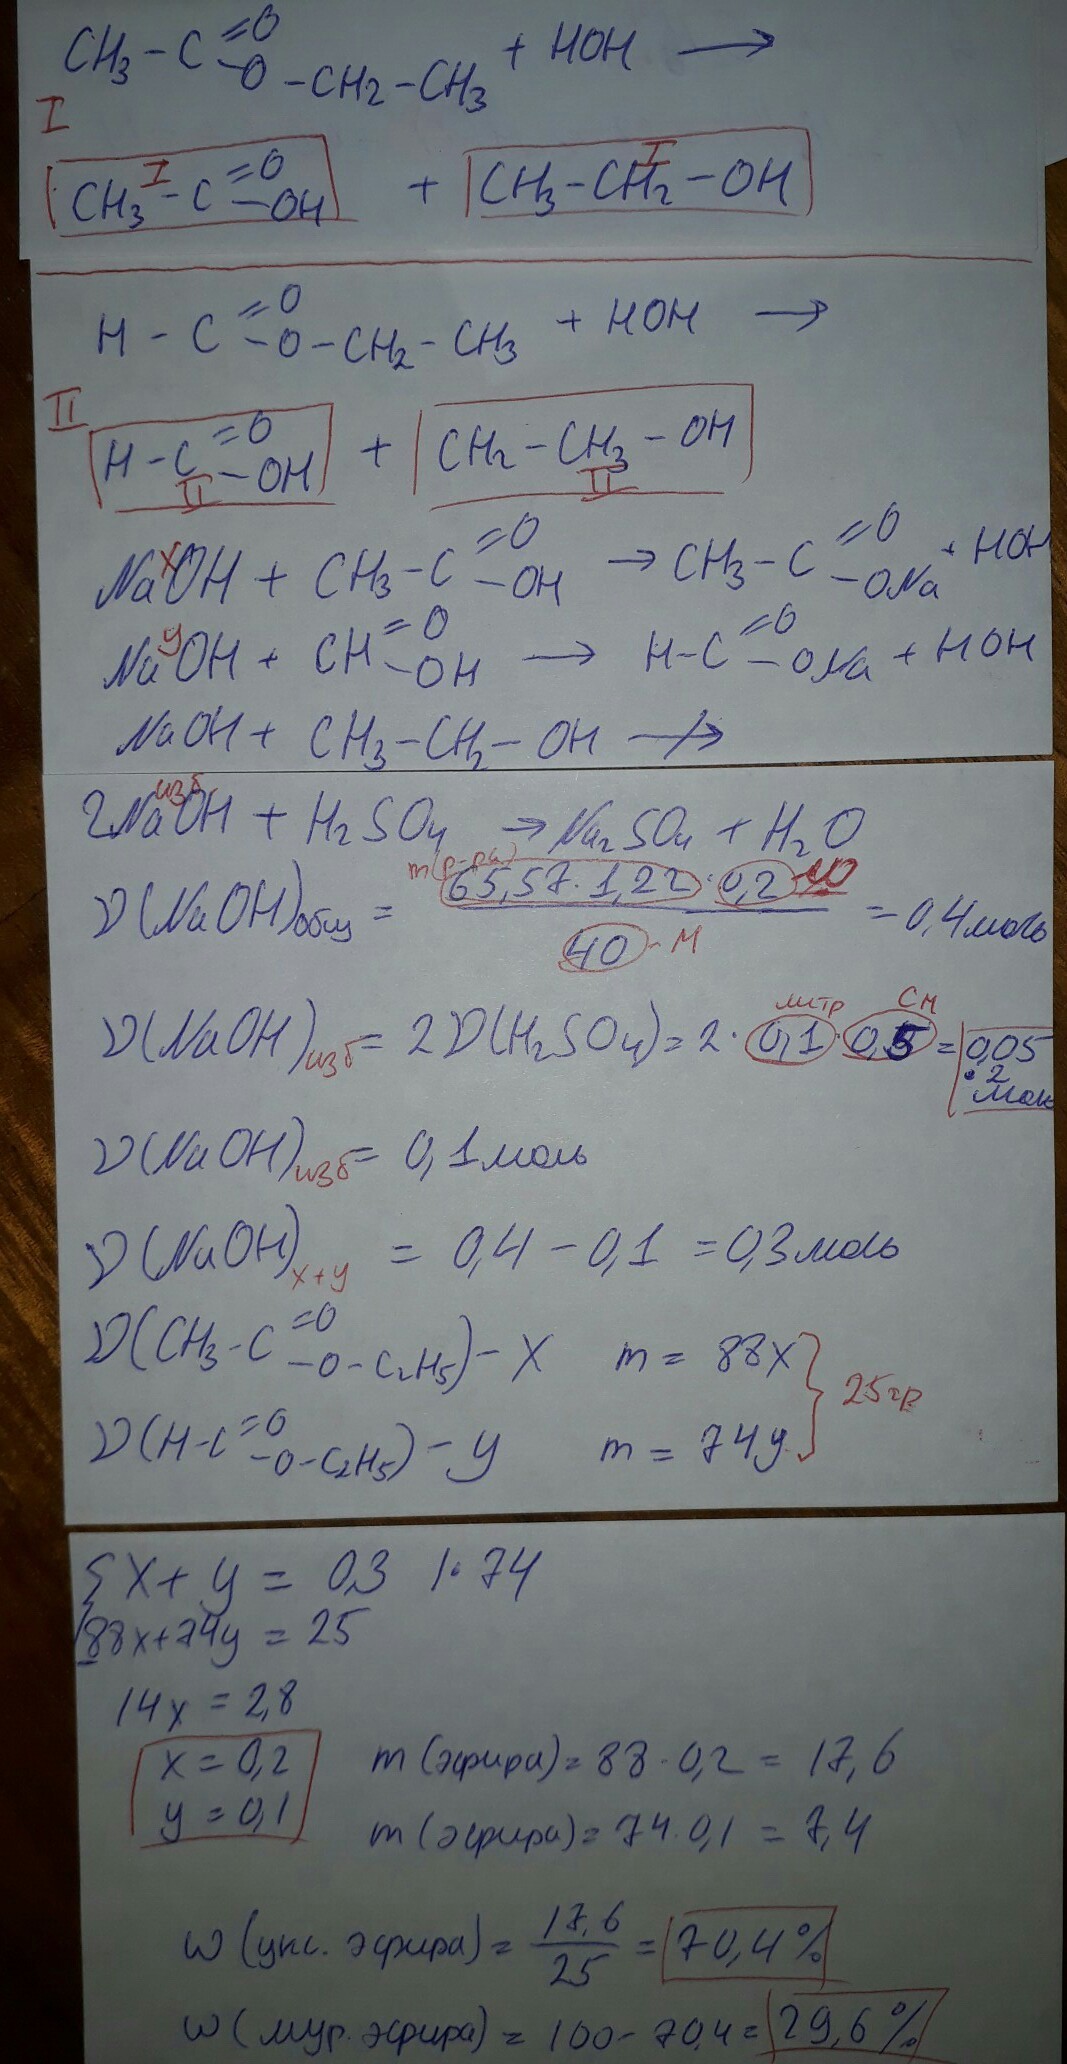 CH₃-C=O-O-CH₂-CH₃ + HOH →
I
CH₃-C=O-OH + CH₃-CH₂-OH
I I
H-C=O-O-CH₂-CH₃ + HOH →
II
H-C=O-OH + CH₂-CH₃-OH
II II
x
NaOH + CH₃-C=O-OH → CH₃-C=O-ONa + HOH
y
NaOH + CH=O-OH → H-C=O-ONa + HOH
NaOH + CH₃-CH₂-OH ↛
изб
2NaOH + H₂SO₄ → Na₂SO₄ + H₂O
m(р-ра)
ν(NaOH)общ = 65,57·1,22·0,2 / 40 - M = 0,4 моль
литр СМ
ν(NaOH)изб = 2ν(H₂SO₄) = 2·0,1·0,5 = 0,05·2 моль
ν(NaOH)изб = 0,1 моль
ν(NaOH)x+y = 0,4 - 0,1 = 0,3 моль
ν(CH₃-C=O-O-C₂H₅) - x m = 88x
25 гр
ν(H-C=O-O-C₂H₅) - y m = 74y
{x + y = 0,3 |·74
88x+74y = 25
14x = 2,8
x = 0,2 m(эфира) = 88·0,2 = 17,6
y = 0,1 m(эфира) = 74·0,1 = 7,4
ω(укс. эфира) = 17,6 / 25 = 70,4%
ω(мур. эфира) = 100 - 70,4 = 29,6%